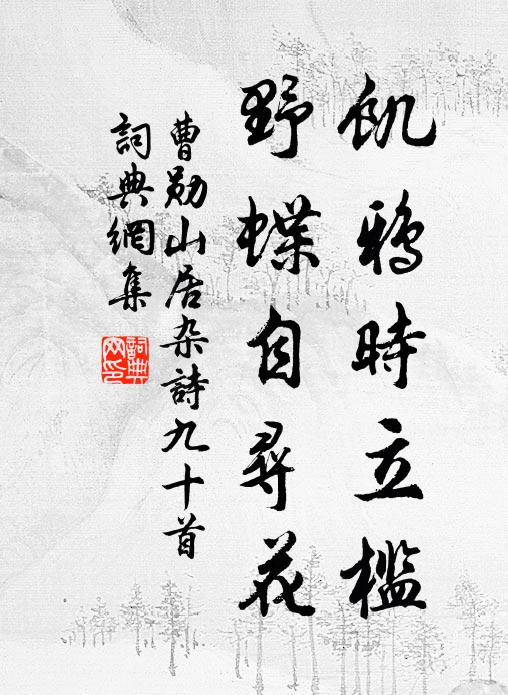 飢鴉時立檻
野蝶自尋花
曹勛山居杂詩九十首
詞典網集
詞典
网印